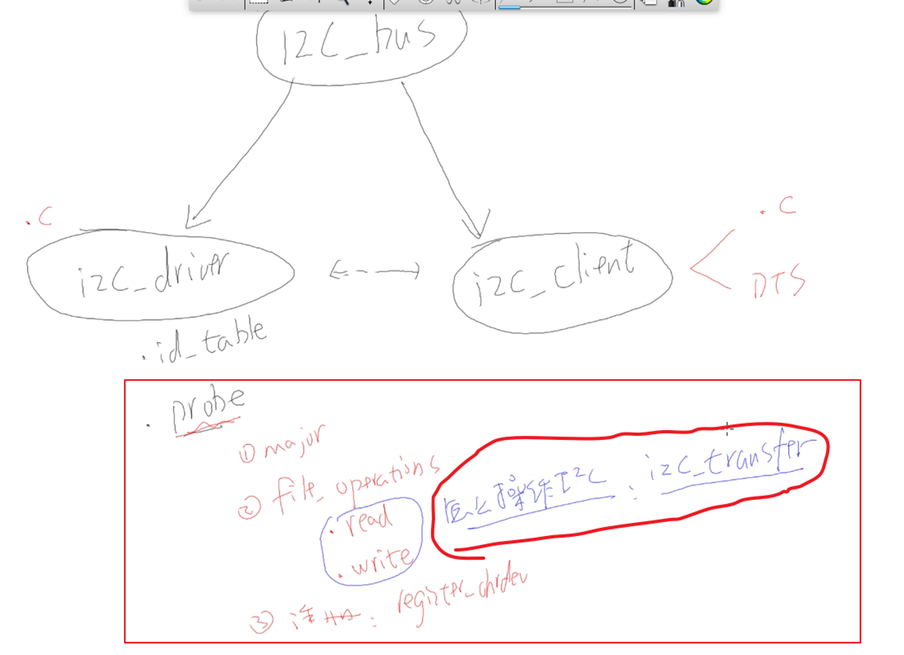 i2c_bus
.c
i2c_driver
i2c_client
.c
DTS
.id_table
.probe
① major
② file_operations
.read
.write
怎么操作I2C: i2c_transfer
③ 注册: register_chrdev